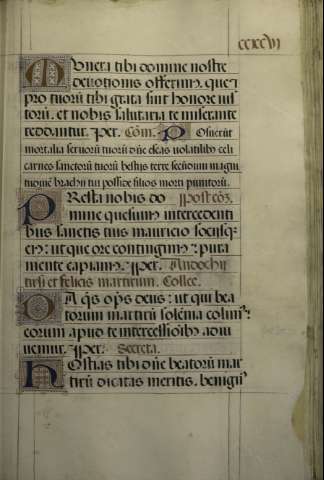 ccxcvi
Munera tibi domine nostre
devotionis offerim⁹. que ⁊
pro tuorū tibi grata sint honore ius
torū. et nobis salutaria te miserante
reddantur. Per. Cōm. Posuerūt
mortalia servorū tuorū dn̄e escas volatilib⁹ celi
carnes sanctorū tuorū bestiis terre secūdum magni
tudinē brachii tui posside filios morti punitorū.
Presta nobis do Postcōȝ.
mine quesum⁹ intercedenti
bus sanctis tuis mauricio sociisq₃
ei⁹: ut que ore contingim⁹: pura
mente capiam⁹. Per. Andochii
tirsi et felicis martirum. Collec.
Da q̄s op̄s deus: ut qui bea
torum martirū solēnia colim⁹:
eorum apud te intercessiōib⁹ adiu
vemur. Per. Secreta.
Hostias tibi dn̄e beatorū mar
tirū dicatas meritis. benign⁹